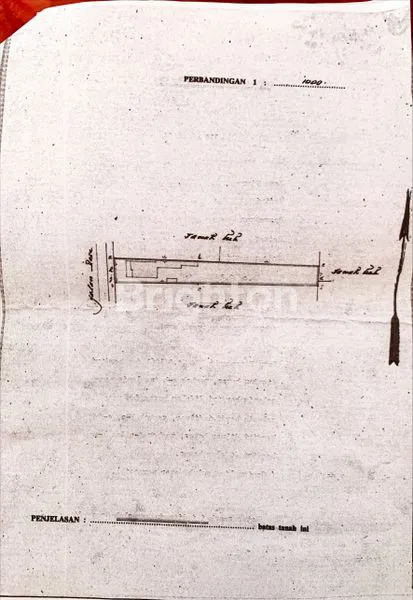 PERBANDINGAN 1 : 1000.
Tanah hak
Jalan Desa
Tanah hak
Brighton
Tanah hak
PENJELASAN : batas tanah ini